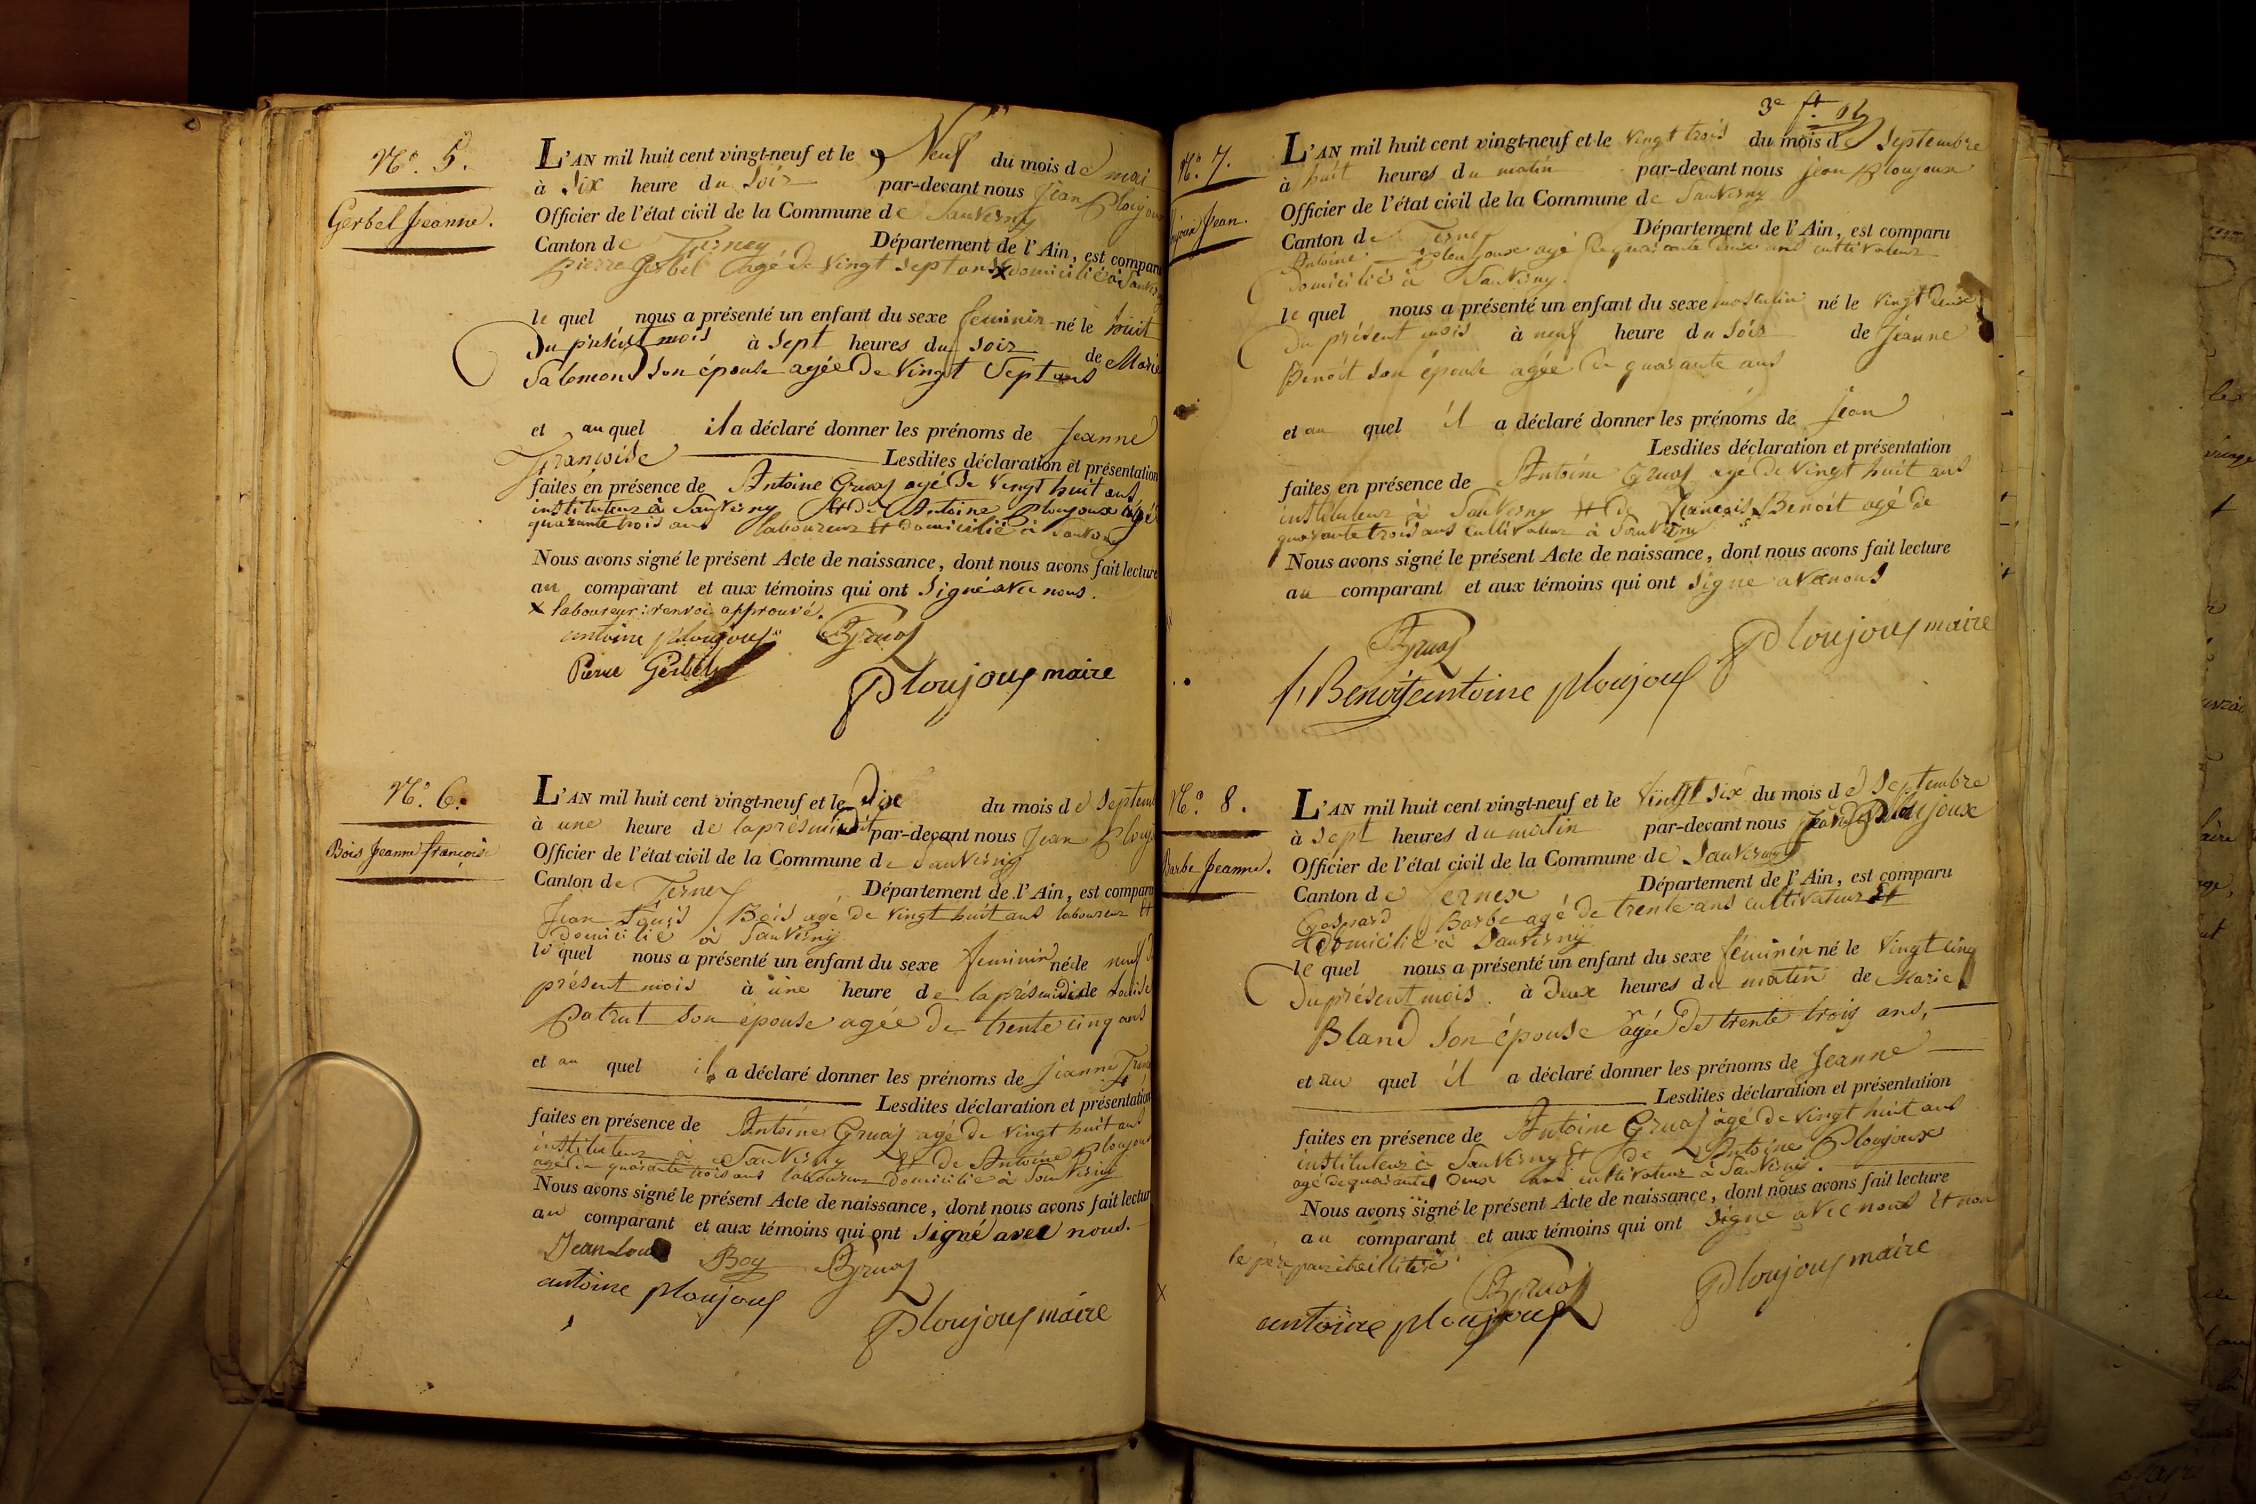 N.o 5.
Gerbel Jeanne.
L'AN mil huit cent vingt-neuf et le 9 Neuf du mois de mai
à Six heure du Soir par-devant nous Jean Ploujoux
Officier de l'état civil de la Commune de Sauverny
Canton de Ferney Département de l'Ain, est comparu
Pierre Gerbel agé de vingt Sept ans x domicilié à Sauverny
le quel nous a présenté un enfant du sexe feminin né le huit
Du présent mois à Sept heures du soir de Marie
Salomon Son épouse agée De Vingt Sept ans
et au quel il a déclaré donner les prénoms de Jeanne
Françoise Lesdites déclaration et présentation
faites en présence de Antoine Gruaz agé De Vingt huit ans
instituteur à Sauverny Et de Antoine Ploujoux agé
quarante trois ans laboureur Et domicilié à Sauverny
Nous avons signé le présent Acte de naissance, dont nous avons fait lecture
au comparant et aux témoins qui ont Signé avec nous.
x laboureur: renvoi approuvé.
antoine ploujoux Gruaz
Pierre Gerbel
Ploujoux maire
N.o 6.
Bois Jeanne françoise
L'AN mil huit cent vingt-neuf et le Dix du mois de Septem
à une heure de laprésmidit par-devant nous Jean Plouj
Officier de l'état civil de la Commune de Sauverny
Canton de Ferney Département de l'Ain, est comparu
Jean Louis Bois agé de vingt huit ans laboureur Et
domicilié à Sauverny
le quel nous a présenté un enfant du sexe feminin né le neuf
présent mois à une heure de laprésmidi de Louise
Patrut Son épouse agée De trente cinq ans
et au quel il a déclaré donner les prénoms de Jeanne
Lesdites déclaration et présentation
faites en présence de Antoine Gruaz agé De vingt huit ans
instituteur à Sauverny Et de Antoine Ploujoux
agé De quarante trois ans laboureur Domicilié à Sauverny
Nous avons signé le présent Acte de naissance, dont nous avons fait lectur
au comparant et aux témoins qui ont Signé avec nous.
Jean Louis Boy Gruaz
antoine ploujoux
Ploujoux maire
3e ft.
N.o 7.
Jean.
L'AN mil huit cent vingt-neuf et le Vingt trois du mois de Septembre
à huit heures du matin par-devant nous Jean Ploujoux
Officier de l'état civil de la Commune de Sauverny
Canton de Ferney Département de l'Ain, est comparu
Antoine Ploujoux agé De quarante Deux ans cultivateur
Domicilié à Sauverny.
le quel nous a présenté un enfant du sexe masculin né le Vingt Deux
Du présent mois à neuf heure du Soir de Jeanne
Benoit Son épouse agée De quarante ans
et au quel il a déclaré donner les prénoms de Jean
Lesdites déclaration et présentation
faites en présence de Antoine Gruaz agé De Vingt huit ans
instituteur à Sauverny Et De François Benoit agé De
quarante trois ans Cultivateur à Sauverny
Nous avons signé le présent Acte de naissance, dont nous avons fait lecture
au comparant et aux témoins qui ont Signé avec nous
Gruaz Ploujoux maire
f, Benoit antoine ploujoux
N.o 8.
Barbe Jeanne.
L'AN mil huit cent vingt-neuf et le Vingt Six du mois de Septembre
à Sept heures du matin par-devant nous Jean Ploujoux
Officier de l'état civil de la Commune de Sauverny
Canton de Fernex Département de l'Ain, est comparu
Gaspard Barbe agé de trente ans cultivateur Et
domicilié à Sauverny
le quel nous a présenté un enfant du sexe féminin né le Vingt cinq
Du présent mois. à Deux heures du matin de Marie
Bland Son épouse agée De trente trois ans,
et au quel il a déclaré donner les prénoms de Jeanne
Lesdites déclaration et présentation
faites en présence de Antoine Gruaz agé De Vingt huit ans
instituteur à Sauverny Et De Antoine Ploujoux
agé De quarante Deux ans cultivateur à Sauverny.
Nous avons signé le présent Acte de naissance, dont nous avons fait lecture
au comparant et aux témoins qui ont Signé avec nous Et non
le père
Gruaz Ploujoux maire
antoine ploujoux